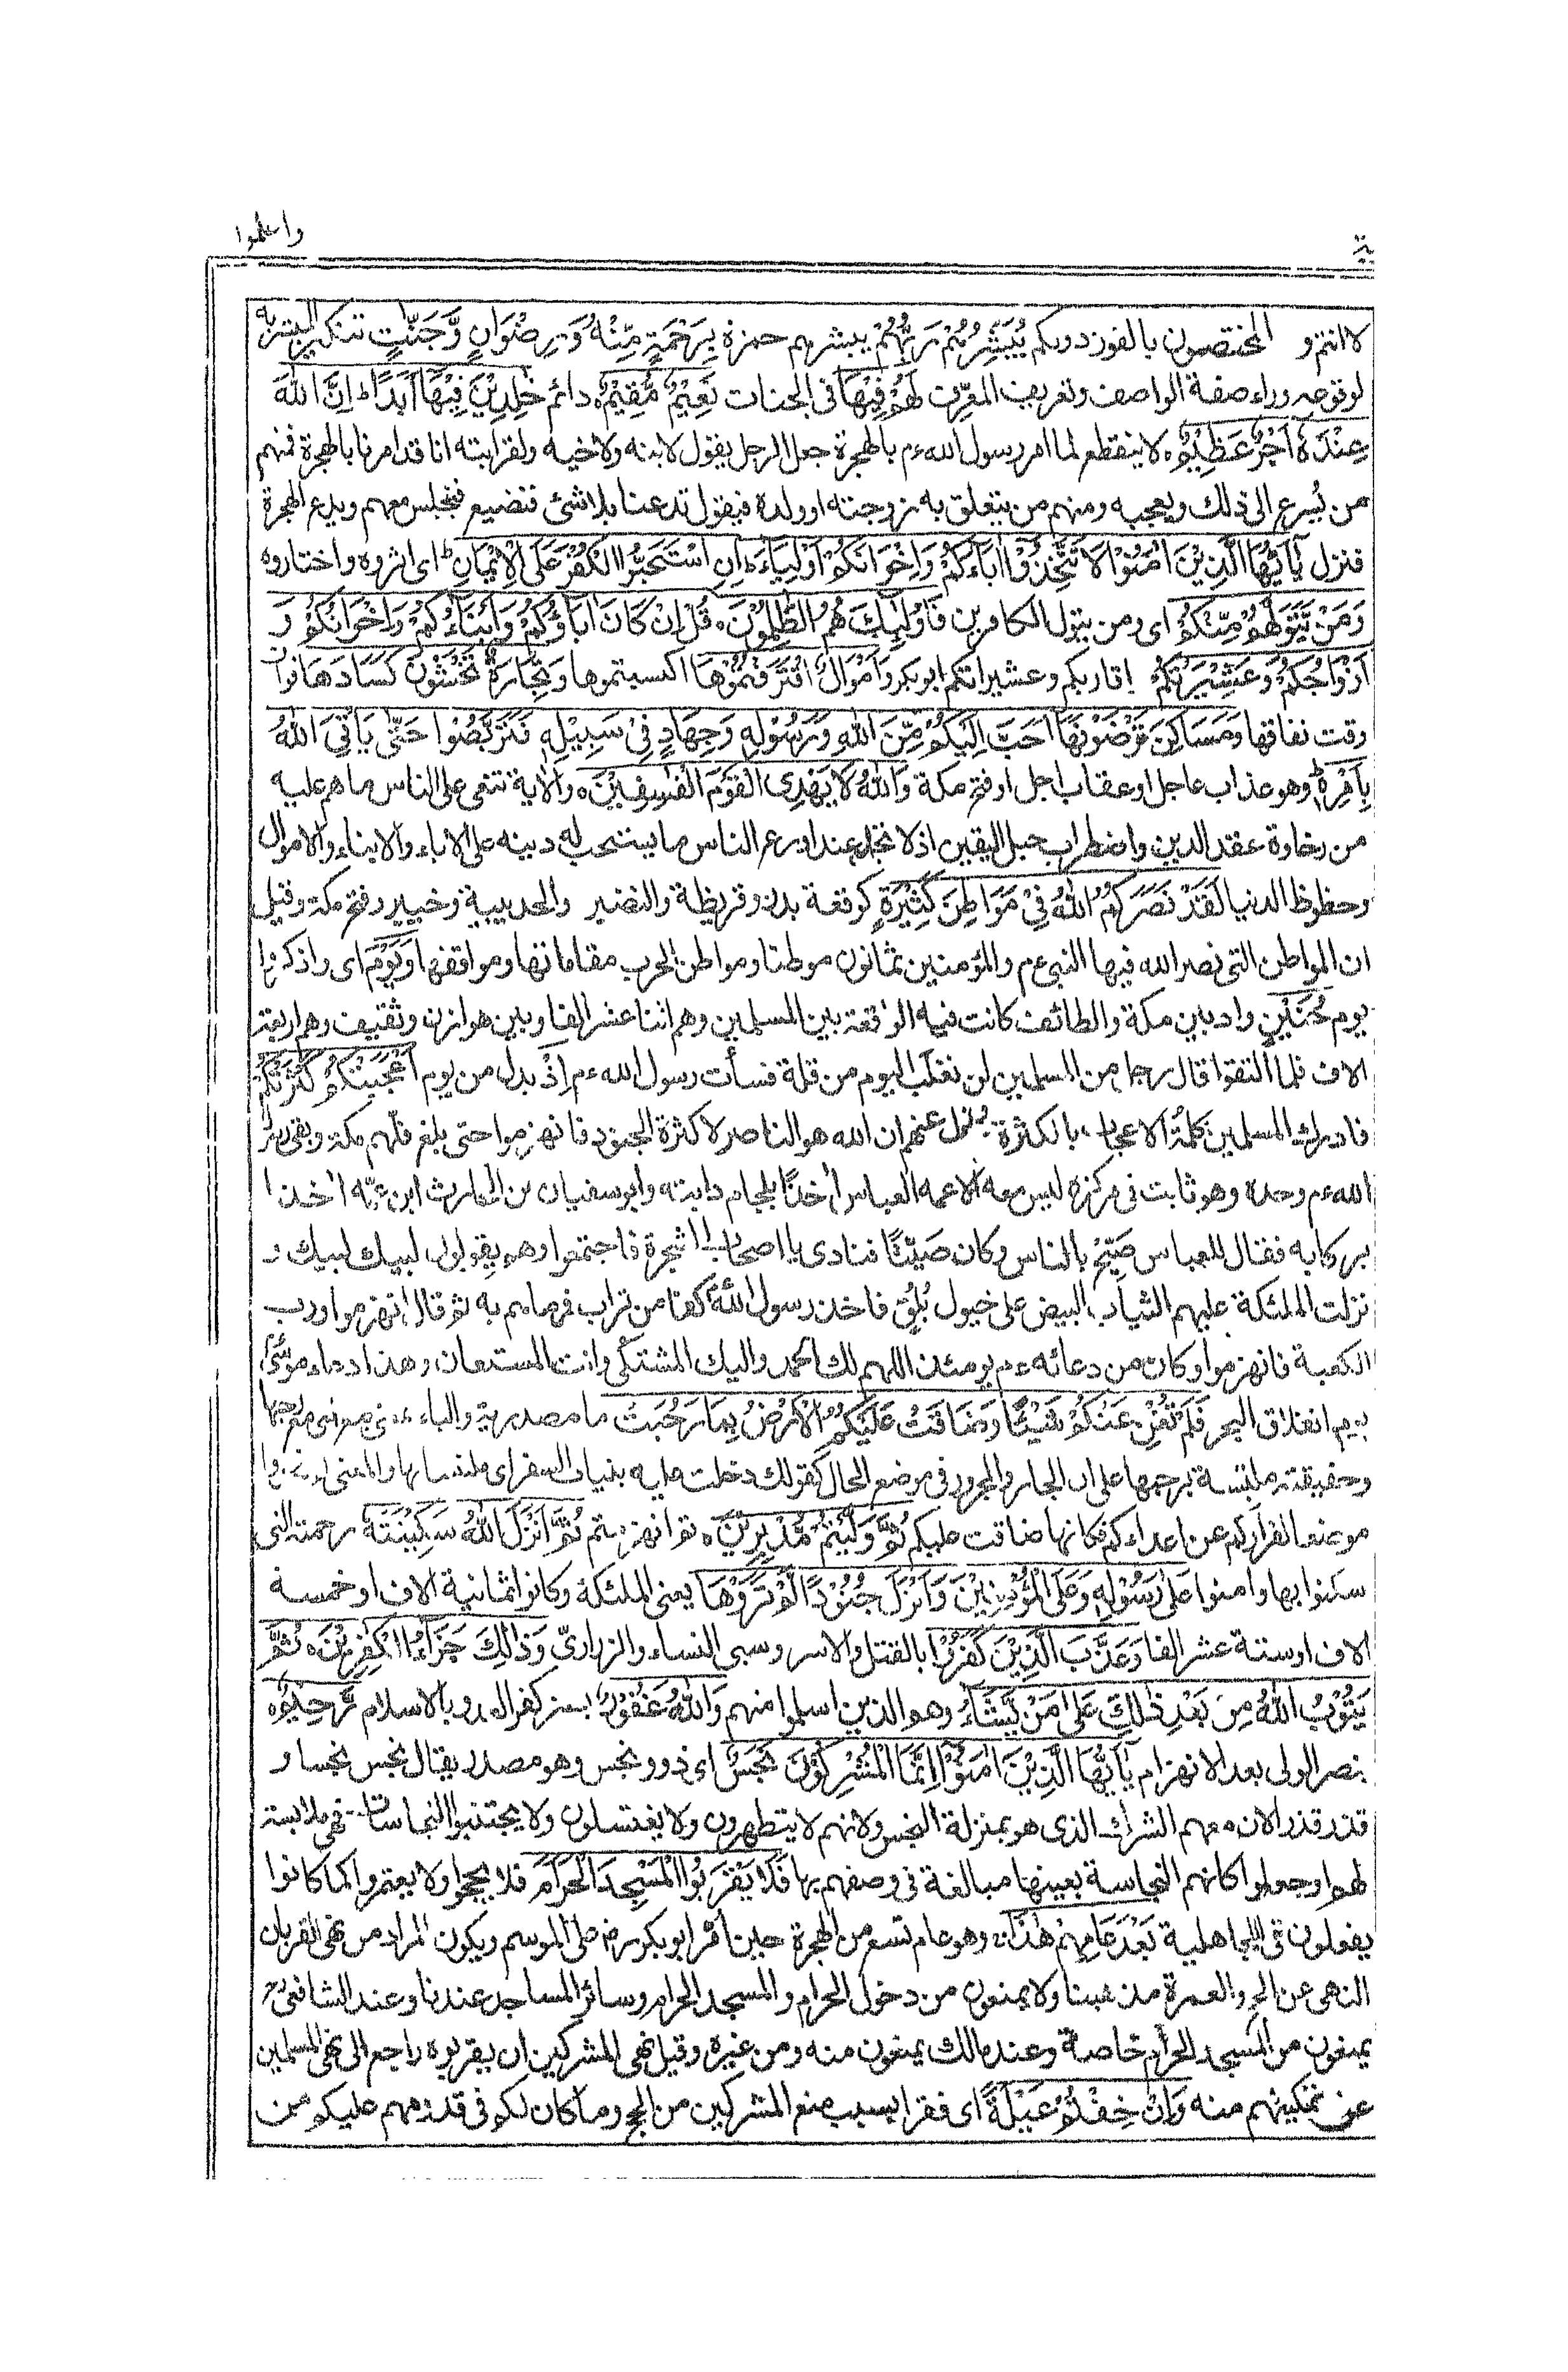 واعلموا
لا انتم و المختصون بالفوز دونكم يُبَشِّرُهُمْ رَبُّهُمْ يبشرهم حمزة بِرَحْمَةٍ مِّنْهُ وَرِضْوَانٍ وَّجَنّٰتٍ تنكير المبشر به
لوقوعه وراء صفة الواصف وتعريف المعرّف لَهُمْ فِيْهَا فى الجنات نَعِيْمٌ مُّقِيْمٌ دائم خٰلِدِيْنَ فِيْهَا اَبَدًا اِنَّ اللهَ
عِنْدَهٗ اَجْرٌ عَظِيْمٌ لا ينقطع لما امر رسول الله ءم بالهجرة جعل الرجل يقول لابنه ولاخيه ولقرابته انا قد امرنا بالهجرة فمنهم
من يُسرع الى ذلك ويعجبه ومنهم من يتعلق به زوجته او ولده فيقول تدعنا بلا شئ فنضيع فيجلس معهم ويدع الهجرة
فنزل يٰاَيُّهَا الَّذِيْنَ اٰمَنُوْا لَا تَتَّخِذُوْا اٰبَاءَكُمْ وَاِخْوَانَكُمْ اَوْلِيَاءَ اِنِ اسْتَحَبُّوا الْكُفْرَ عَلَى الْاِيْمَانِ اى اثروه واختاروه
وَمَنْ يَّتَوَلَّهُمْ مِّنْكُمْ اى ومن يتول الكافرين فَاُولٰئِكَ هُمُ الظّٰلِمُوْنَ قُلْ اِنْ كَانَ اٰبَاؤُكُمْ وَاَبْنَاؤُكُمْ وَاِخْوَانُكُمْ وَ
اَزْوَاجُكُمْ وَعَشِيْرَتُكُمْ اقاربكم وعشيراتكم ابوبكر وَاَمْوَالُ اقْتَرَفْتُمُوْهَا اكتسبتموها وَتِجَارَةٌ تَخْشَوْنَ كَسَادَهَا فوات
وقت نفاقها وَمَسَاكِنَ تَرْضَوْنَهَا اَحَبَّ اِلَيْكُمْ مِّنَ اللهِ وَرَسُوْلِهٖ وَجِهَادٍ فِىْ سَبِيْلِهٖ فَتَرَبَّصُوْا حَتّٰى يَاْتِىَ اللهُ
بِاَمْرِهٖ وهو عذاب عاجل او عقاب اجل او فتح مكة وَاللهُ لَا يَهْدِى الْقَوْمَ الْفٰسِقِيْنَ والاية تنعى على الناس ما هم عليه
من رخاوة عقد الدين واضطراب حبل اليقين اذ لا تجد عند اورع الناس ما يستحب له دينه على الاباء والابناء والاموال
وحظوظ الدنيا لَقَدْ نَصَرَكُمُ اللهُ فِىْ مَوَاطِنَ كَثِيْرَةٍ كوقعة بدر وقريظة والنضير والحديبية وخيبر وفتح مكة وقيل
ان المواطن التى نصر الله فيها النبى ءم والمؤمنين ثمانون موطنا ومواطن الحرب مقاماتها ومواقفها وَيَوْمَ اى واذكروا
يوم حُنَيْنٍ واد بين مكة والطائف كانت فيه الوقعة بين المسلمين وهم اثنا عشر الفا وبين هوازن وثقيف وهم اربعة
الاف فلما التقوا قال رجل من المسلمين لن نغلب اليوم من قلة فسأت رسول الله ءم اِذْ بدل من يوم اَعْجَبَتْكُمْ كَثْرَتُكُمْ
فادرك المسلمين كلمة الاعجاب بالكثرة وزل عنهم ان الله هو الناصر لا كثرة الجنود فانهزموا حتى بلغ فلّهم مكة وبقى رسول
الله ءم وحده وهو ثابت فى مركزه ليس معه الا عمه العباس أخذًا بلجام دابته وابو سفيان بن الحارث ابن عمّه اخذا
بركابه فقال للعباس صَيِّحْ بالناس وكان صَيِّتًا فنادى يا اصحاب الشجرة فاجتمعوا وهم يقولون لبيك لبيك و
نزلت الملٰئكة عليهم الثياب البيض على خيول بُلْقٍ فاخذ رسول الله كفا من تراب فرماهم به ثم قال انهزموا ورب
الكعبة فانهزموا وكان من دعائه ءم يومئذ اللهم لك الحمد واليك المشتكى وانت المستعان وهذا دعاء موسى
يوم انفلاق البحر فَلَمْ تُغْنِ عَنْكُمْ شَيْئًا وَضَاقَتْ عَلَيْكُمُ الْاَرْضُ بِمَا رَحُبَتْ ما مصدرية والباء بمعنى مع اى مع رحبها
وحقيقته ملتبسة برحبها على ان الجار والمجرور فى موضع الحال كقولك دخلت عليه بثياب السفر اى ملتبسا بها والمعنى لم تجدوا
موضعا لفراركم عن اعداءكم فكانها ضاقت عليكم ثُمَّ وَلَّيْتُمْ مُّدْبِرِيْنَ ثم انهزمتم ثُمَّ اَنْزَلَ اللهُ سَكِيْنَتَهٗ رحمته التى
سكنوا بها وامنوا عَلٰى رَسُوْلِهٖ وَعَلَى الْمُؤْمِنِيْنَ وَاَنْزَلَ جُنُوْدًا لَّمْ تَرَوْهَا يعنى الملٰئكة وكانوا ثمانية الاف او خمسة
الاف او ستة عشر الفا وَعَذَّبَ الَّذِيْنَ كَفَرُوْا بالقتل والاسر وسبى النساء والزرارىّ وَذٰلِكَ جَزَاءُ الْكٰفِرِيْنَ ثُمَّ
يَتُوْبُ اللهُ مِنْ بَعْدِ ذٰلِكَ عَلٰى مَنْ يَّشَاءُ وهم الذين اسلموا منهم وَاللهُ غَفُوْرٌ بستر كفر العدو بالاسلام رَّحِيْمٌ
بنصر الولى بعد الانهزام يٰاَيُّهَا الَّذِيْنَ اٰمَنُوْا اِنَّمَا الْمُشْرِكُوْنَ نَجَسٌ اى ذوو نجس وهو مصدر يقال نجس نجسا و
قذر قذرا لان معهم الشرك الذى هو بمنزلة النجس ولانهم لا يتطهرون ولا يغتسلون ولا يجتنبوا النجاسات فهى ملابسة
لهم او جعلوا كانهم النجاسة بعينها مبالغة فى وصفهم بها فَلَا يَقْرَبُوا الْمَسْجِدَ الْحَرَامَ فلا يحجوا ولا يعتمروا كما كانوا
يفعلون فى الجاهلية بَعْدَ عَامِهِمْ هٰذَا وهو عام تسع من الهجرة حين اُمّر ابوبكر رض على الموسم ويكون المراد من نهى القربان
النهى عن الحج والعمرة مذهبنا ولا يمنعون من دخول الحرام والمسجد الحرام وسائر المساجد عندنا وعند الشافعى رح
يمنعون من المسجد الحرام خاصة وعند مالك يمنعون منه ومن غيره وقيل نهى المشركين ان يقربوه راجع الى نهى المسلمين
عن تمكينهم منه وَاِنْ خِفْتُمْ عَيْلَةً اى فقرا بسبب منع المشركين من الحج وما كان لكم فى قدومهم عليكم من